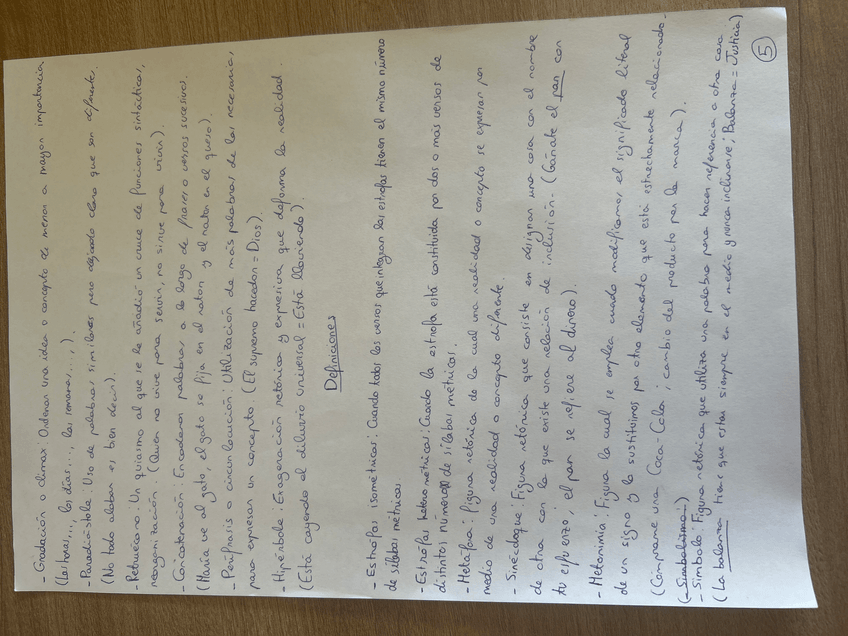 - Gradación o clímax: Ordenar una idea o concepto de menor a mayor importancia
(Las horas..., los días..., las semanas...,).
- Paradiástole: Uso de palabras similares pero dejando claro que son diferente.
(No todo alabar es bien decir).
- Retruécano: Un quiasmo al que se le añadió un cruce de funciones sintácticas,
reorganización (Quien no vive para servir, no sirve para vivir).
- Concatenación: Encadenar palabras a lo largo de frases o versos sucesivos.
(María ve al gato, el gato se fija en el ratón y el ratón en el queso).
- Perífrasis o circunlocución: Utilización de más palabras de las necesarias,
para expresar un concepto. (El supremo hacedor = Dios).
- Hipérbole: Exageración retórica y expresiva que deforma la realidad.
(Está cayendo el diluvio universal = Está lloviendo).
Definiciones
- Estrofas isométricas: Cuando todos los versos que integran las estrofas tienen el mismo número
de sílabas métricas.
- Estrofas heterométricas: Cuando la estrofa está constituida por dos o más versos de
distintos número de sílabas métricas.
- Metáfora: figura retórica de la cual una realidad o concepto se expresan por
medio de una realidad o concepto diferente.
- Sinécdoque: Figura retórica que consiste en designar una cosa con el nombre
de otra con la que existe una relación de inclusión. (Gánate el pan con
tu esfuerzo, el pan se refiere al dinero).
- Metonimia: Figura la cual se emplea cuando modificamos, el significado literal
de un signo y lo sustituimos por otro elemento que está estrechamente relacionado.
(Comprame una Coca-Cola; cambio del producto por la marca).
(- Simbolismo -)
- Símbolo: Figura retórica que utiliza una palabra para hacer referencia a otra cosa
(La balanza tiene que estar siempre en el medio y nunca inclinarse; Balanza = Justicia)
5